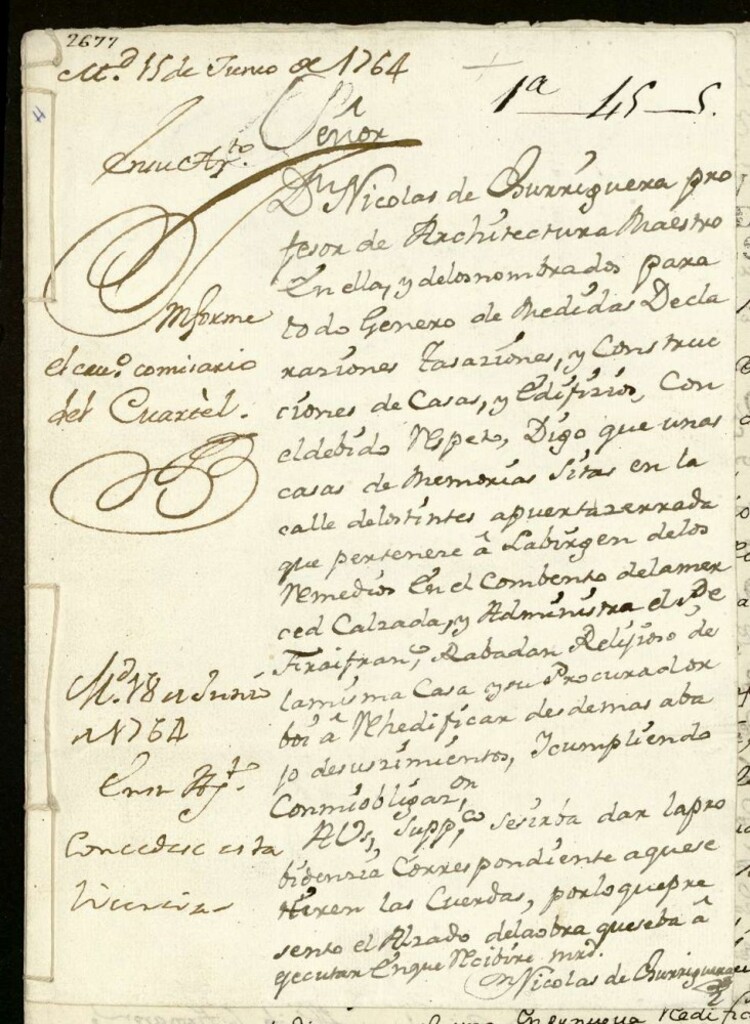 2677
M.d 15 de Junio de 1764
1a 45 5.
Señor
En su Ay.to
Informe
el cau.o comisario
del Cuartèl.
Dn Nicolas de Churriguera pro
fesor de Architectura Maestro
en ella, y delos nombrados para
todo Genero de Medidas Decla
raziones tasaziones, y Construc
ciones de Casas, y Edifizios, Con
eldebido Respeto, Digo que unas
casas de Memorias Sitas en la
calle delostintes apuertazerrada
que pertenere â Labirgen delos
Remedios En el Combento delamer
ced Calzada, y Administra el Pe
Fraifran.co Rabadan Relijioso de
lamisma Casa y su Procurador
boi â Rhedificar desdemas aba
jo desuszimientos, Icumpliendo
Conmiobligaz.on
AVs, Supp.co sesirba dar lapro
bidenzia Correspondiente aquese
tiren las Cuerdas, porloquepre
sento el Alzado delaobra queseba â
egecutar Enque Recibire mrd.
Nicolas de Churriguera
M.d 18 de Junio
de 1764
En su Ay.to
Concedese esta
licencia